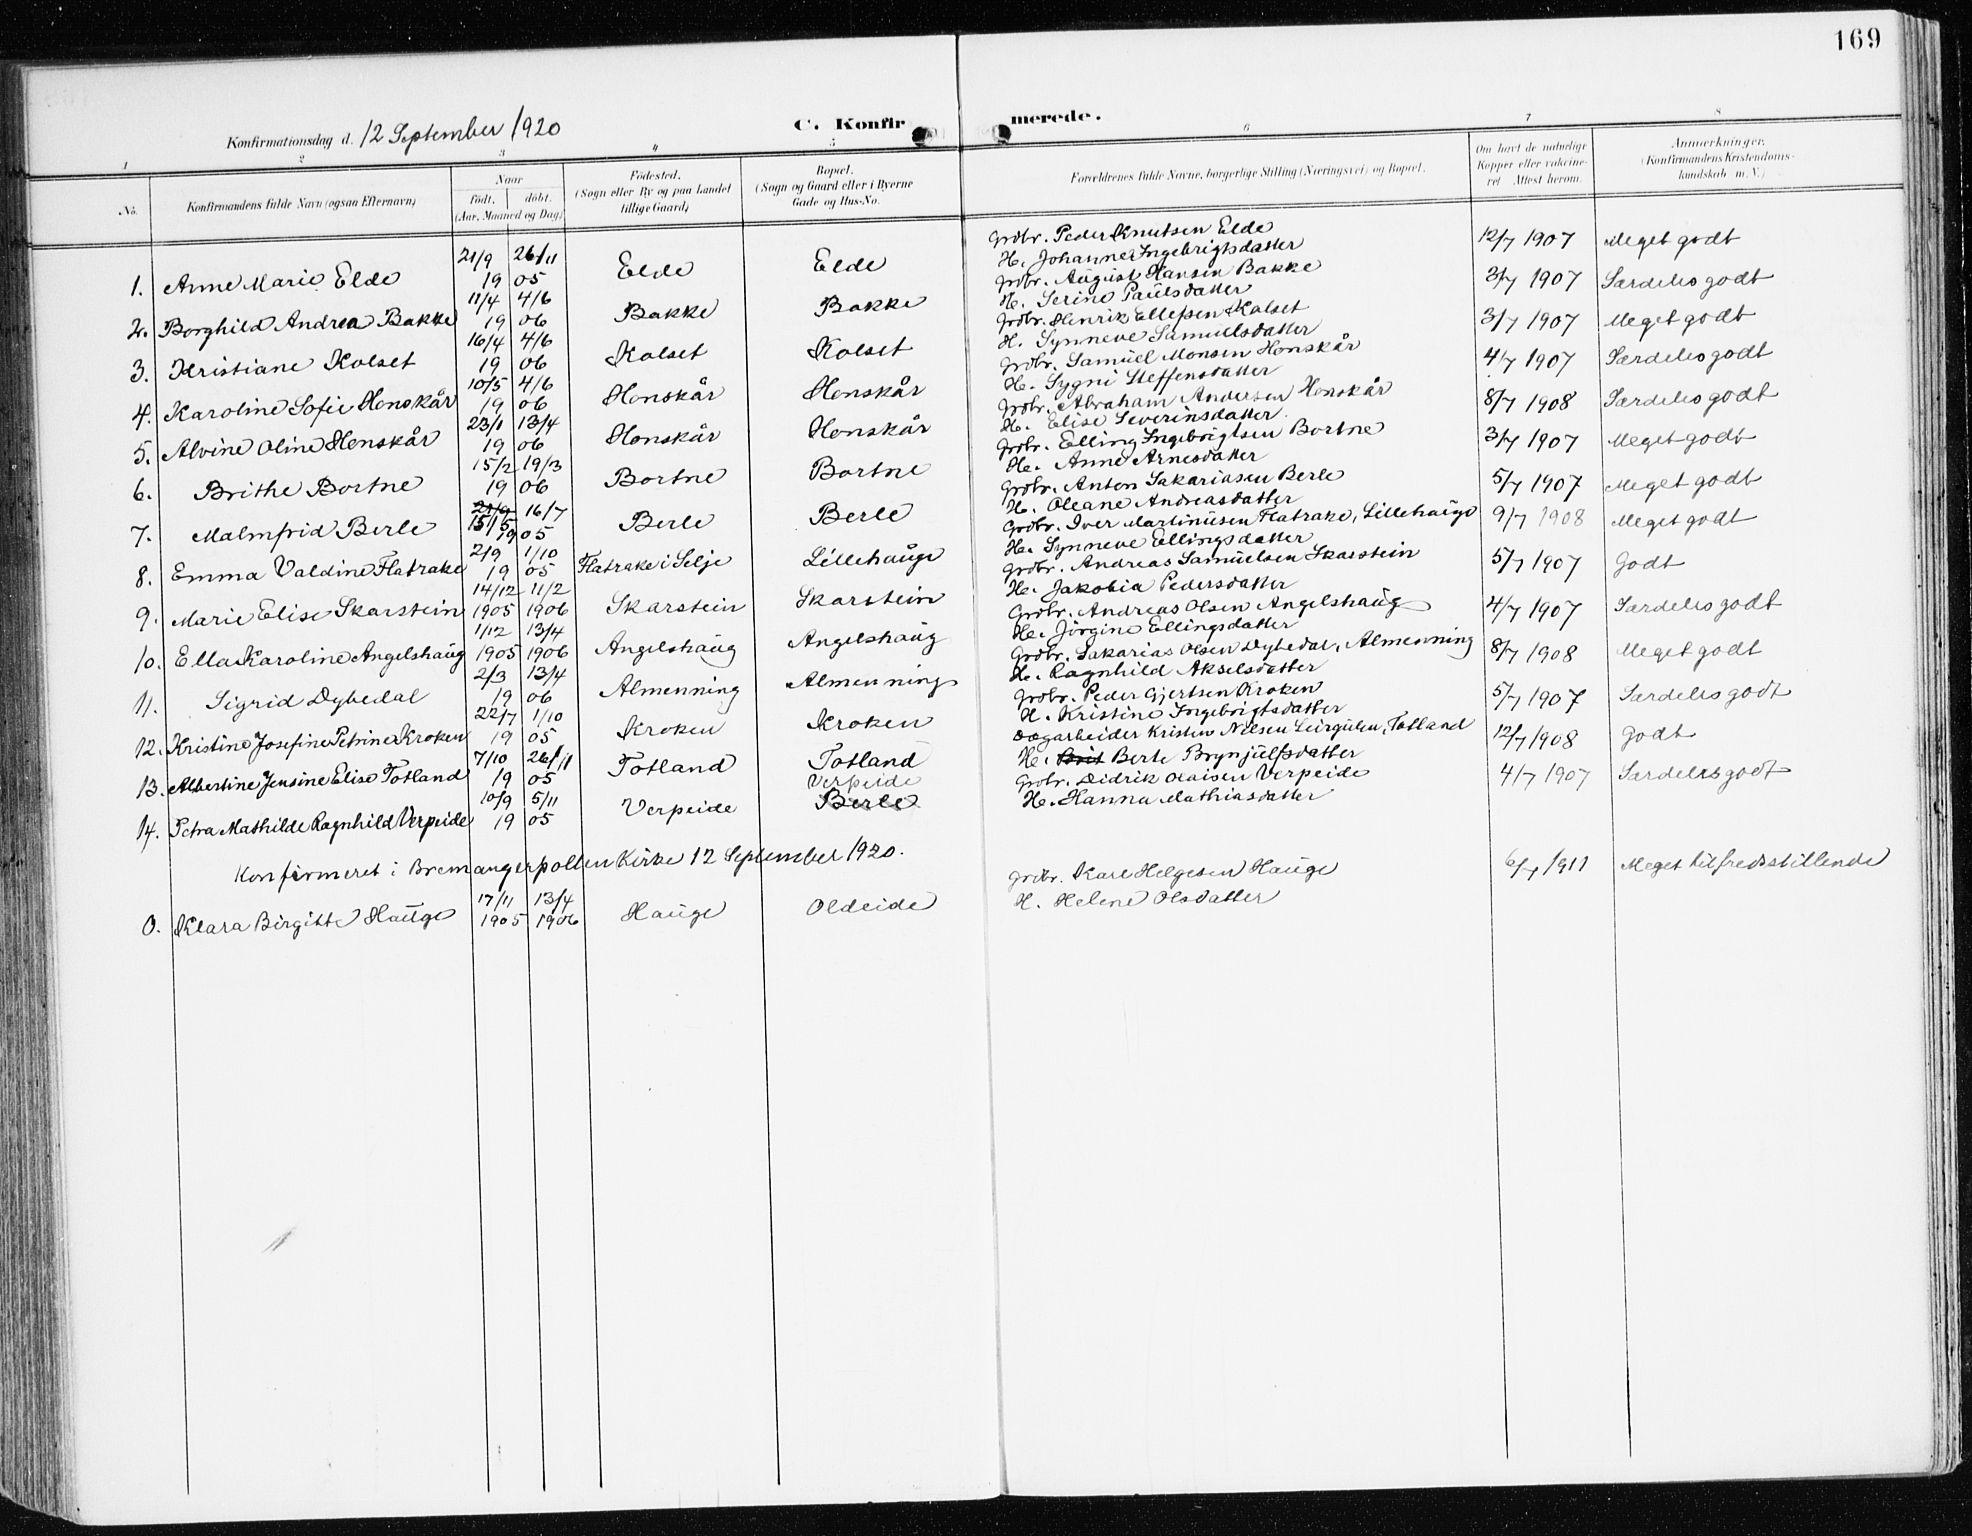 169
Konfirmationsdag d. 12 September 1920
C. Konfirmerede.
1 2 3 4 5 6 7 8
No.
Konfirmandens fulde Navn (ogsaa Efternavn)
Naar født. døbt. (Aar, Maaned og Dag)
Fødested. (Sogn eller By og paa Landet tillige Gaard)
Bopæl. (Sogn og Gaard eller i Byerne Gade og Hus-No.
Forældrenes fulde Navne, borgerlige Stilling (Næringsvei) og Bopæl.
Om havt de naturlige Kopper eller vakcineret. Attest herom.
Anmærkninger. (Konfirmandens Kristendomskundskab m. V.)
1. Anne Marie Elde 21/9 1905 26/11 Elde Elde Grdbr. Peder Knutsen Elde 12/7 1907 Meget godt
H. Johanne Ingebrigtsdatter
2. Borghild Andrea Bakke 11/4 1906 4/6 Bakke Bakke Grdbr. August Hansen Bakke 3/7 1907 Særdeles godt
H. Serine Paulsdatter
3. Kristiane Kolset 16/4 1906 4/6 Kolset Kolset Grdbr. Henrik Ellefsen Kolset 3/7 1907 Meget godt
H. Synneve Samuelsdatter
4. Karoline Sofie Honskår 10/5 1906 4/6 Honskår Honskår Grdbr. Samuel Monsen Honskår 4/7 1907 Særdeles godt
H. Sygni Steffensdatter
5. Alvine Oline Honskår 23/1 1906 13/4 Honskår Honskår Grdbr. Abraham Andersen Honskår 8/7 1908 Særdeles godt
H. Elise Severinsdatter
6. Brithe Bortne 15/2 1906 19/3 Bortne Bortne Grdbr. Elling Ingebrigtsen Bortne 3/7 1907 Meget godt
H. Anne Arnesdatter
7. Malmfrid Berle 21/9 15/5 1905 16/7 Berle Berle Grdbr. Anton Sakariasen Berle 5/7 1907 Meget godt
H. Oleane Andreasdatter
8. Emma Valdine Flatrake 2/9 1905 1/10 Flatrake i Selje Lillehauge Grdbr. Iver Martinusen Flatrake, Lillehauge 9/7 1908 Meget godt
H. Synneve Ellingsdatter
9. Marie Elise Skarstein 14/12 1905 11/2 1906 Skarstein Skarstein Grdbr. Andreas Samuelsen Skarstein 5/7 1907 Godt
H. Jakobia Pedersdatter
10. Ella Karoline Angelshaug 1/12 1905 13/4 1906 Angelshaug Angelshaug Grdbr. Andreas Olsen Angelshaug 4/7 1907 Særdeles godt
H. Jörgine Ellingsdatter
11. Sigrid Dybedal 2/3 1906 13/4 Almenning Almenning Grdbr. Sakarias Olsen Dybedal, Almenning 8/7 1908 Meget godt
H. Ragnhild Akselsdatter
12. Kristine Josefine Petrine Kroken 22/7 1905 1/10 Kroken Kroken Grdbr. Peder Gjertsen Kroken 5/7 1907 Særdeles godt
H. Kristine Ingebrigtsdatter
13. Albertine Jensine Elise Totland 7/10 1905 26/11 Totland Totland Dagarbeider Kristen Nilsen Leirgulen, Totland 12/7 1908 Godt
H. Brit Berte Brynjulfsdatter
14. Petra Mathilde Ragnhild Verpeide 10/9 1905 5/11 Verpeide Verpeide Berle Grdbr. Didrik Olaisen Verpeide 4/7 1907 Særdeles godt
H. Hanna Mathiasdatter
Konfirmeret i Bremangerpollen Kirke 12 September 1920.
0. Klara Birgitte Hauge 17/11 1905 13/4 1906 Hauge Oldeide Grdbr. Karl Helgesen Hauge 6/7 1911 Meget tilfredsstillende
H. Helene Olsdatter